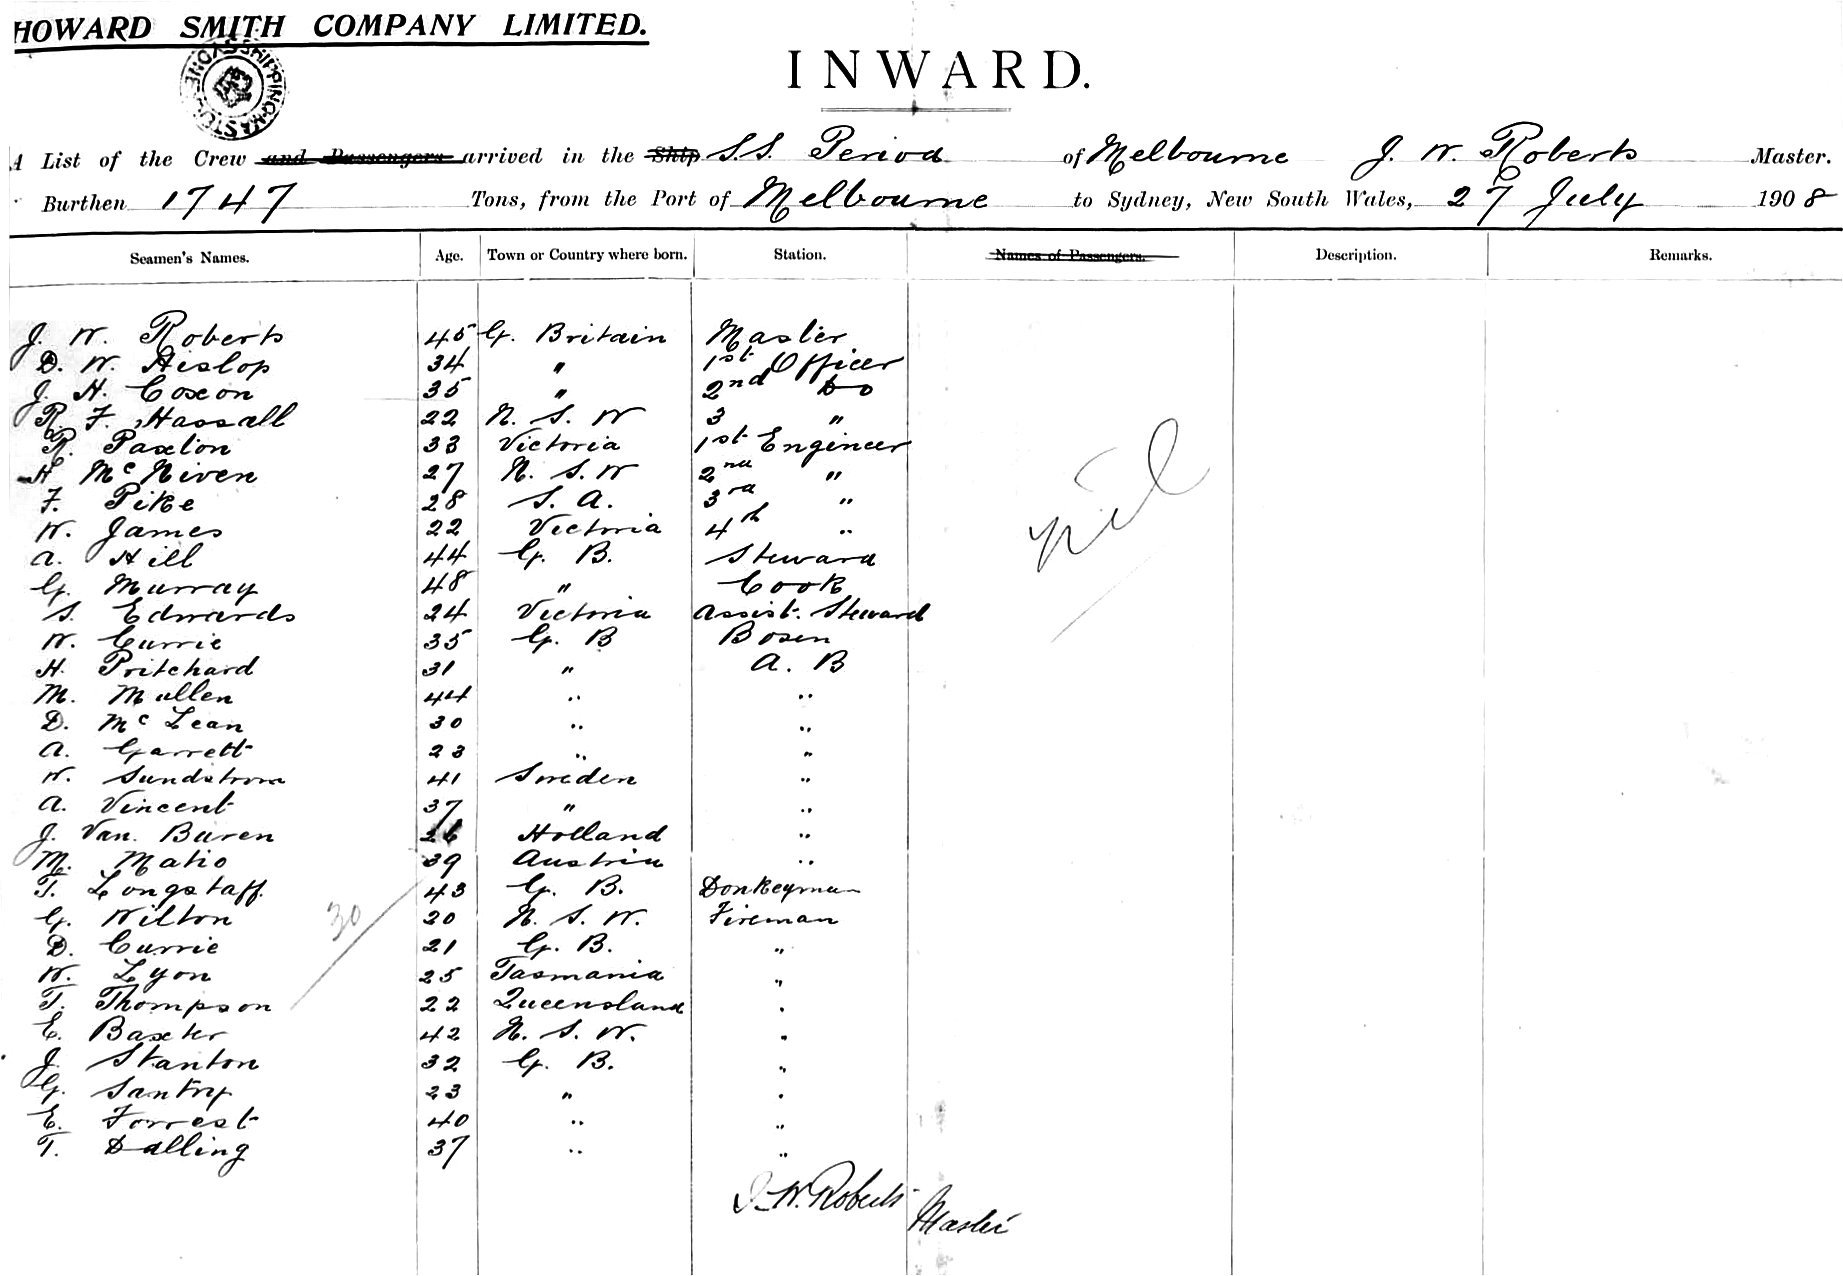 HOWARD SMITH COMPANY LIMITED.
SHIPPING MASTER SYDNEY
INWARD.
A List of the Crew and Passengers arrived in the Ship S.S. Period of Melbourne J. W. Roberts Master.
Burthen 1747 Tons, from the Port of Melbourne to Sydney, New South Wales, 27 July 1908
Seamen's Names. Age. Town or Country where born. Station. Names of Passengers. Description. Remarks.
J. W. Roberts 45 G. Britain Master
D. W. Hislop 34 " 1st Officer
J. H. Coxon 35 " 2nd Do
R. F. Hassall 22 N. S. W 3 "
R. Paxton 33 Victoria 1st Engineer
H McNiven 27 N. S. W 2nd "
F. Pike 28 S. A. 3rd "
W. James 22 Victoria 4th "
A. Hill 44 G. B. Steward
G. Murray 48 " Cook
S. Edwards 24 Victoria Assist. Steward
W. Currie 35 G. B Bosen
H. Pritchard 31 " A. B
M. Mullen 44 " "
D. McLean 30 " "
A. Garrett 23 " "
W. Sundstrom 41 Sweden "
A. Vincent 37 " "
J. Van. Buren 26 Holland "
M. Matio 39 Austria "
T. Longstaff. 43 G. B. Donkeyman
G. Wilton 20 N. S. W. Fireman
D. Currie 21 G. B. "
W. Lyon 25 Tasmania "
T. Thompson 22 Queensland "
E. Baxter 42 N. S. W. "
J. Stanton 32 G. B. "
G. Santry 23 " "
E. Forrest 40 " "
T. Dalling 37 " "
nil
30
J. W. Roberts Master